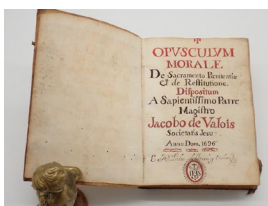 OPVSCVLVM
MORALE
De Sacramento Penitentiæ
Et de Restitutione.
Dispositum
A Sapientissimo Patre
Magistro
Jacobo de Valois
Societatis Jesu
Anno Dom. 1696